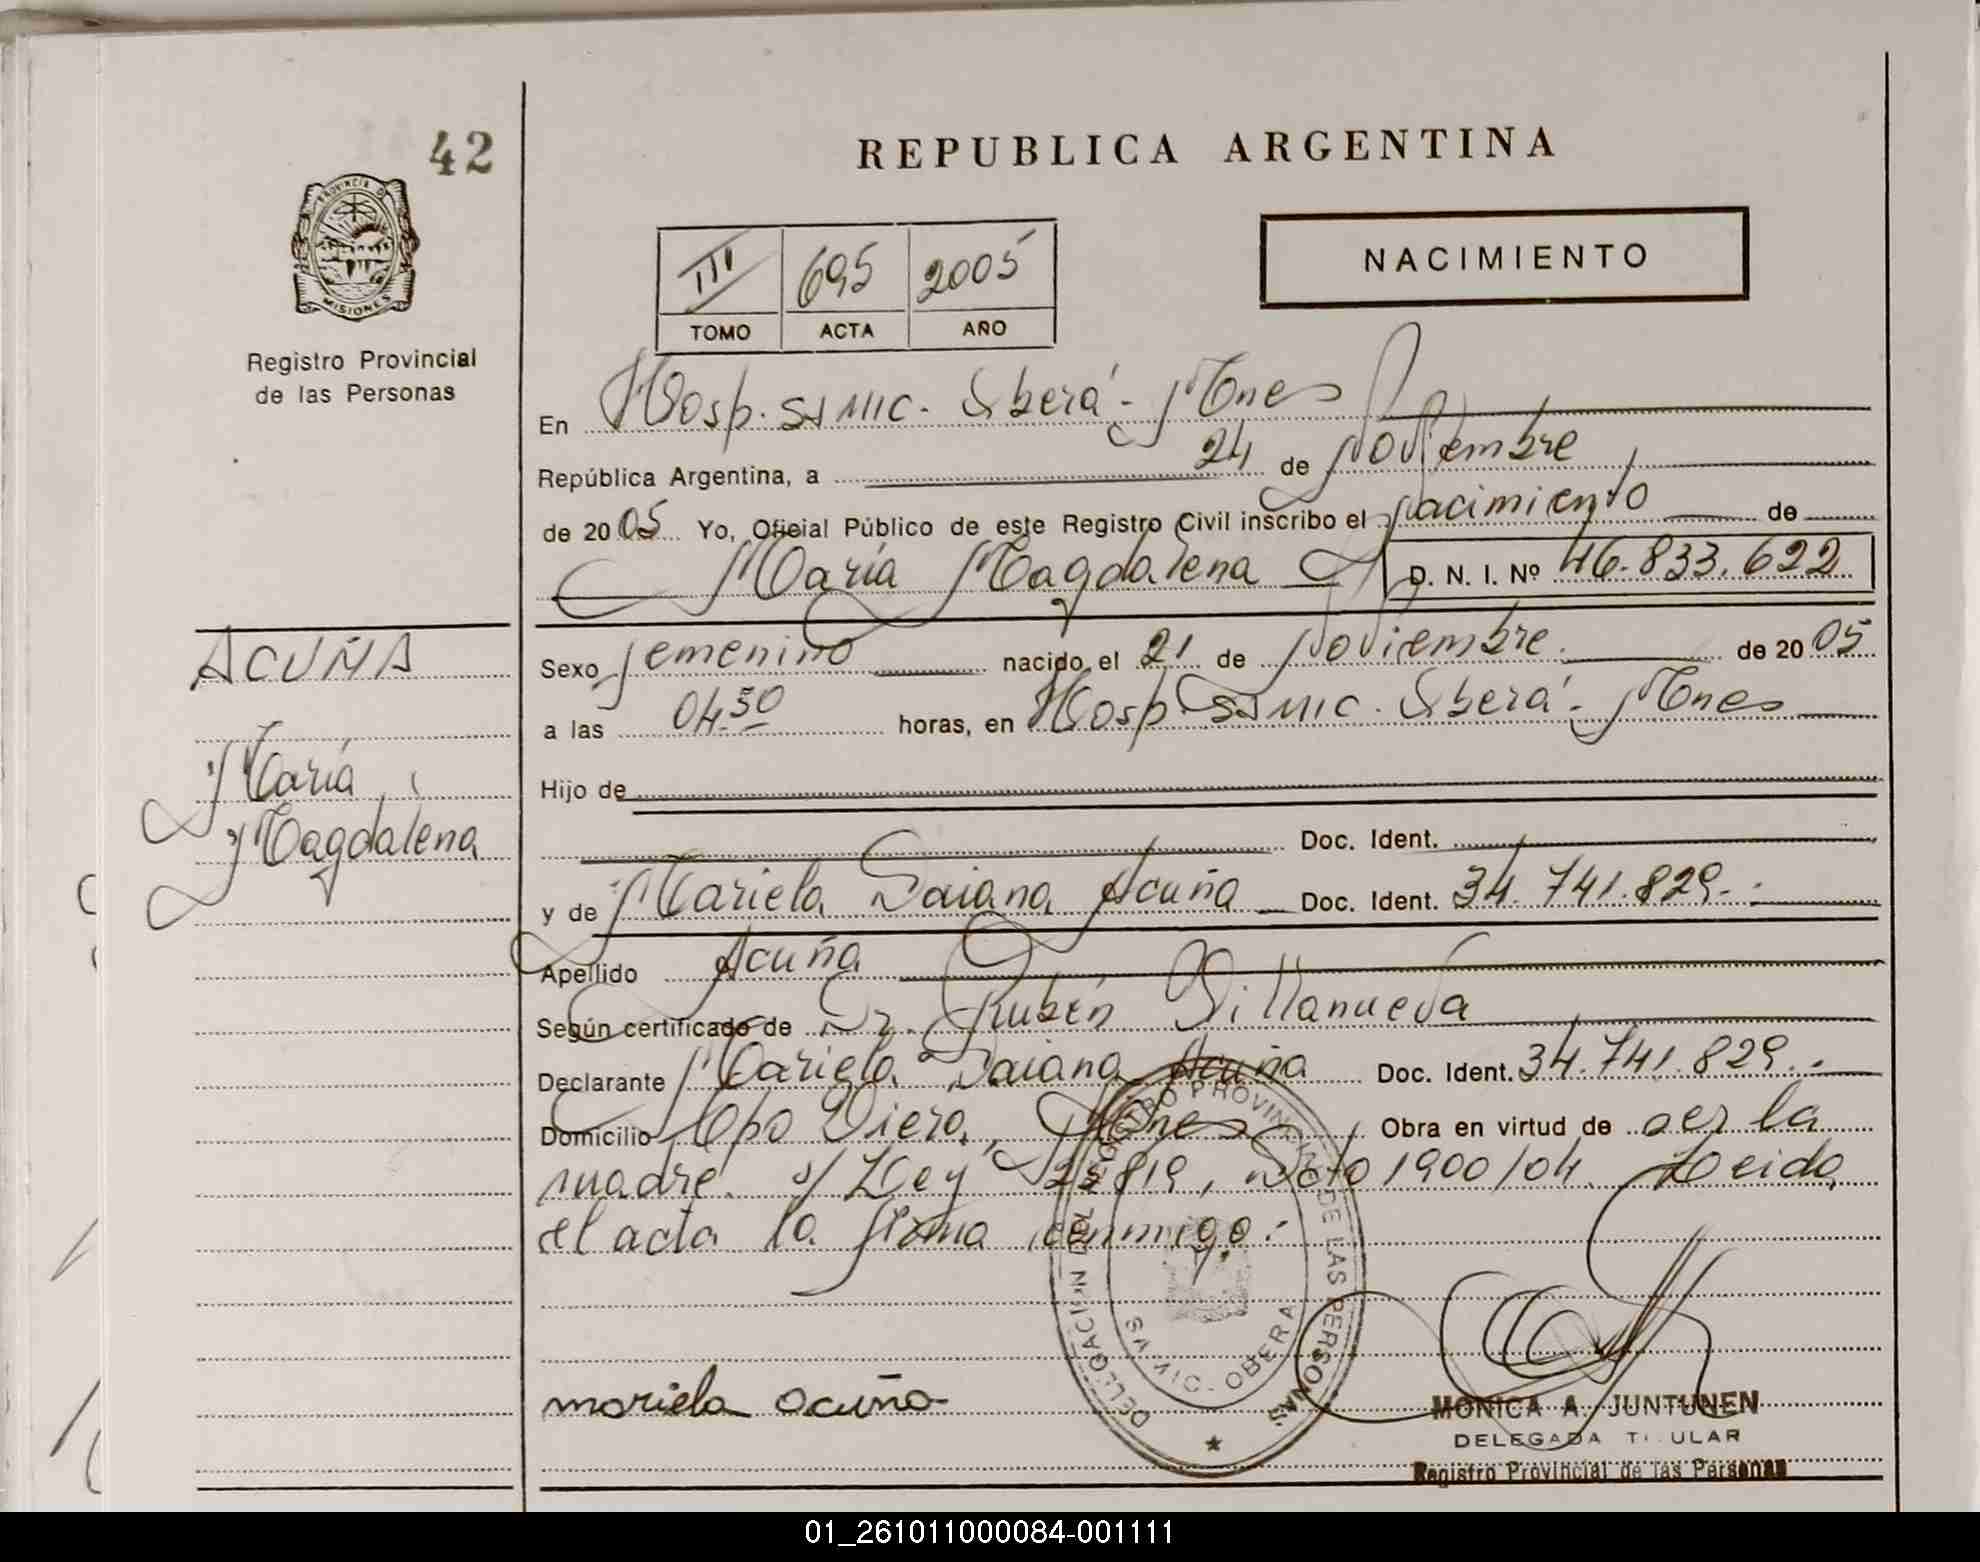 42
PROVINCIA D
MISIONES
Registro Provincial
de las Personas
REPUBLICA ARGENTINA
III 695 2005
TOMO ACTA AÑO
NACIMIENTO
En Hosp. SAMIC. Oberá - Mnes
República Argentina, a 24 de Noviembre
de 2005 Yo, Oficial Público de este Registro Civil inscribo el nacimiento de
María Magdalena D. N. I. Nº 46.833.622
ACUÑA
María
Magdalena
Sexo femenino nacido el 21 de Noviembre. de 20 05
a las 04.50 horas, en Hosp. SAMIC. Oberá - Mnes
Hijo de
Doc. Ident.
y de Mariela Daiana Acuña Doc. Ident. 34.741.829.-
Apellido Acuña
Según certificado de Dr. Rubén Villanueva
Declarante Mariela Daiana Acuña Doc. Ident. 34.741.829.-
Domicilio Cpo Viera, Mnes Obra en virtud de ser la
madre. s/ Ley 25819, Dcto 1900/04. Leida
el acta la firma conmigo.-
mariela acuña
REGISTRO PROVINCIAL DE LAS PERSONAS
DELEGACION DEL
OBERA
MONICA A. JUNTUNEN
DELEGADA TITULAR
Registro Provincial de las Personas
01_261011000084-001111